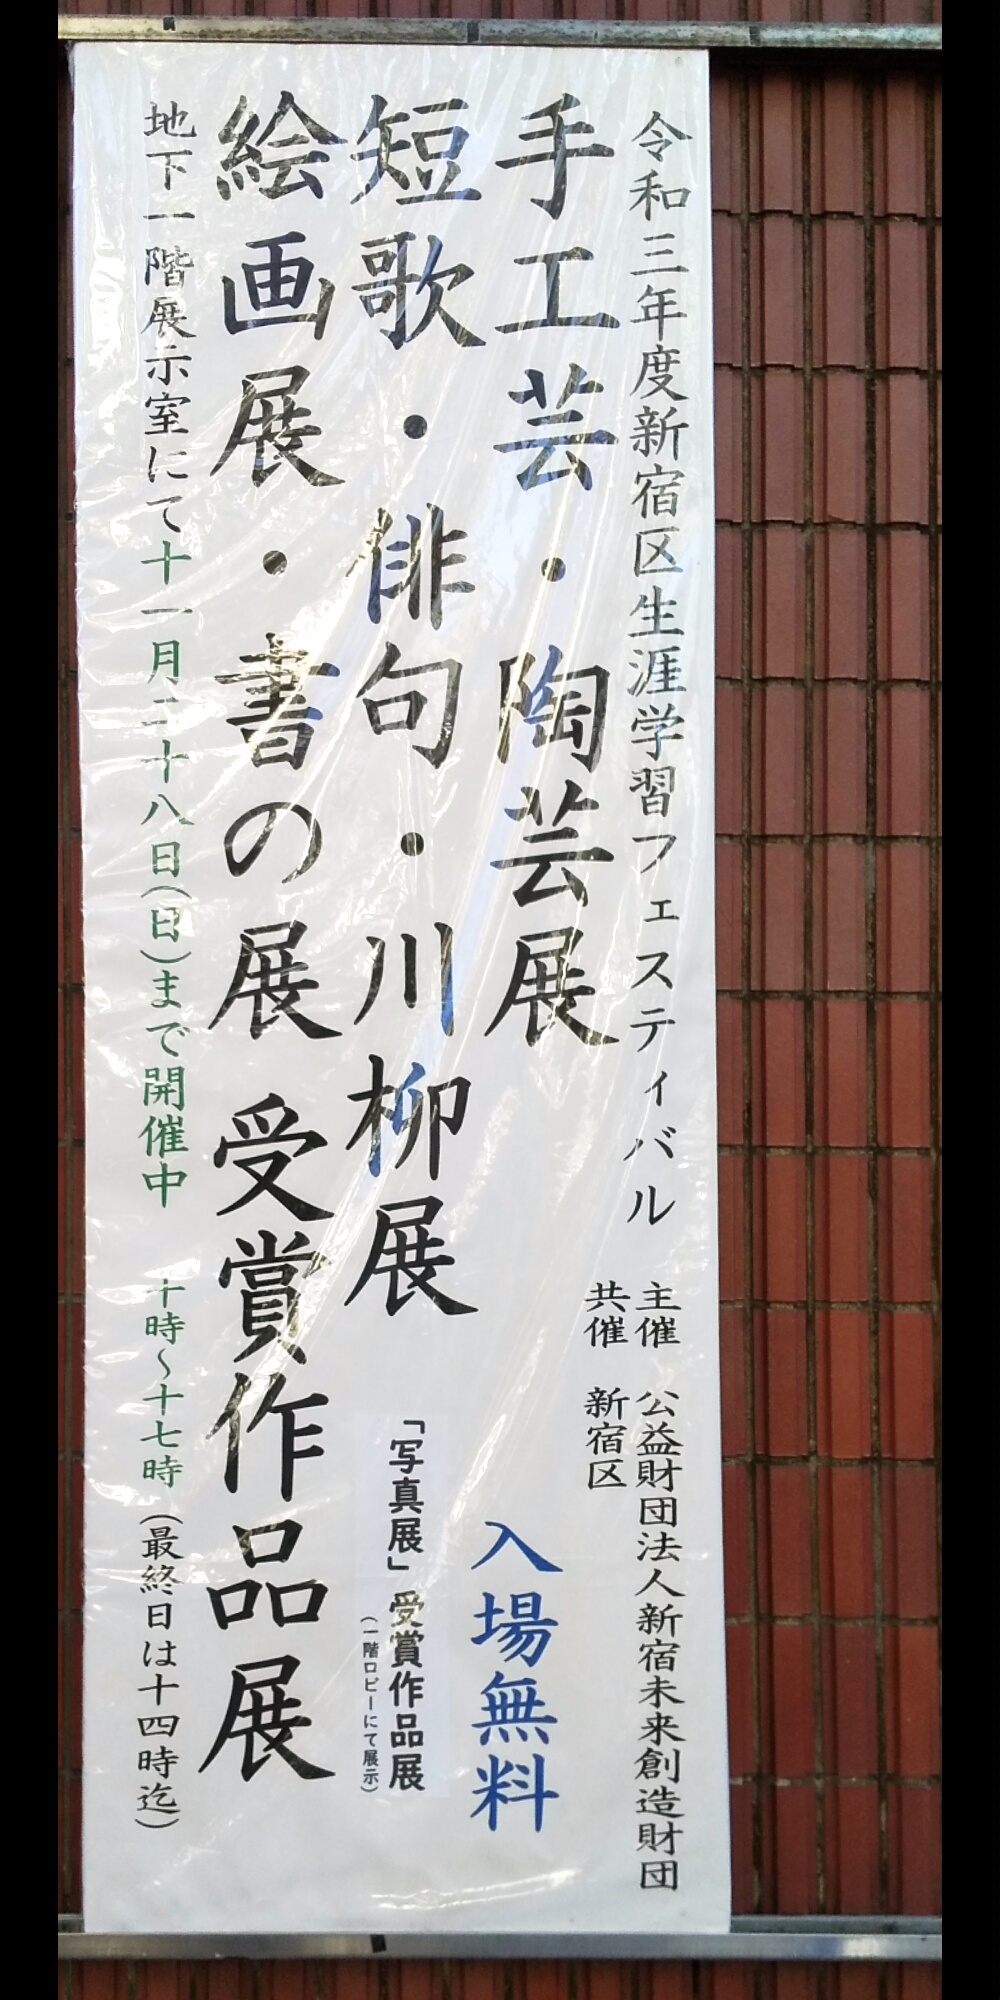 令和三年度新宿区生涯学習フェスティバル
主催　公益財団法人新宿未来創造財団
共催　新宿区
手工芸・陶芸展
入場無料
短歌・俳句・川柳展
「写真展」受賞作品展
（一階ロビーにて展示）
絵画展・書の展　受賞作品展
地下一階展示室にて十一月二十八日(日)まで開催中　十時～十七時(最終日は十四時迄)